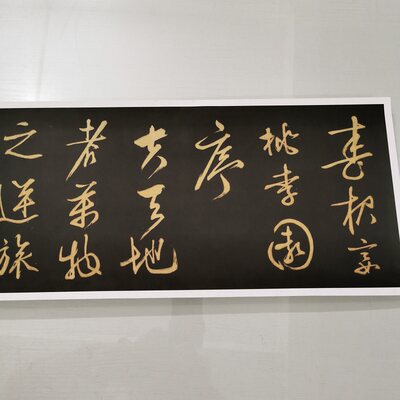 春夜宴
桃李園
序
夫天地
者萬物
之逆旅